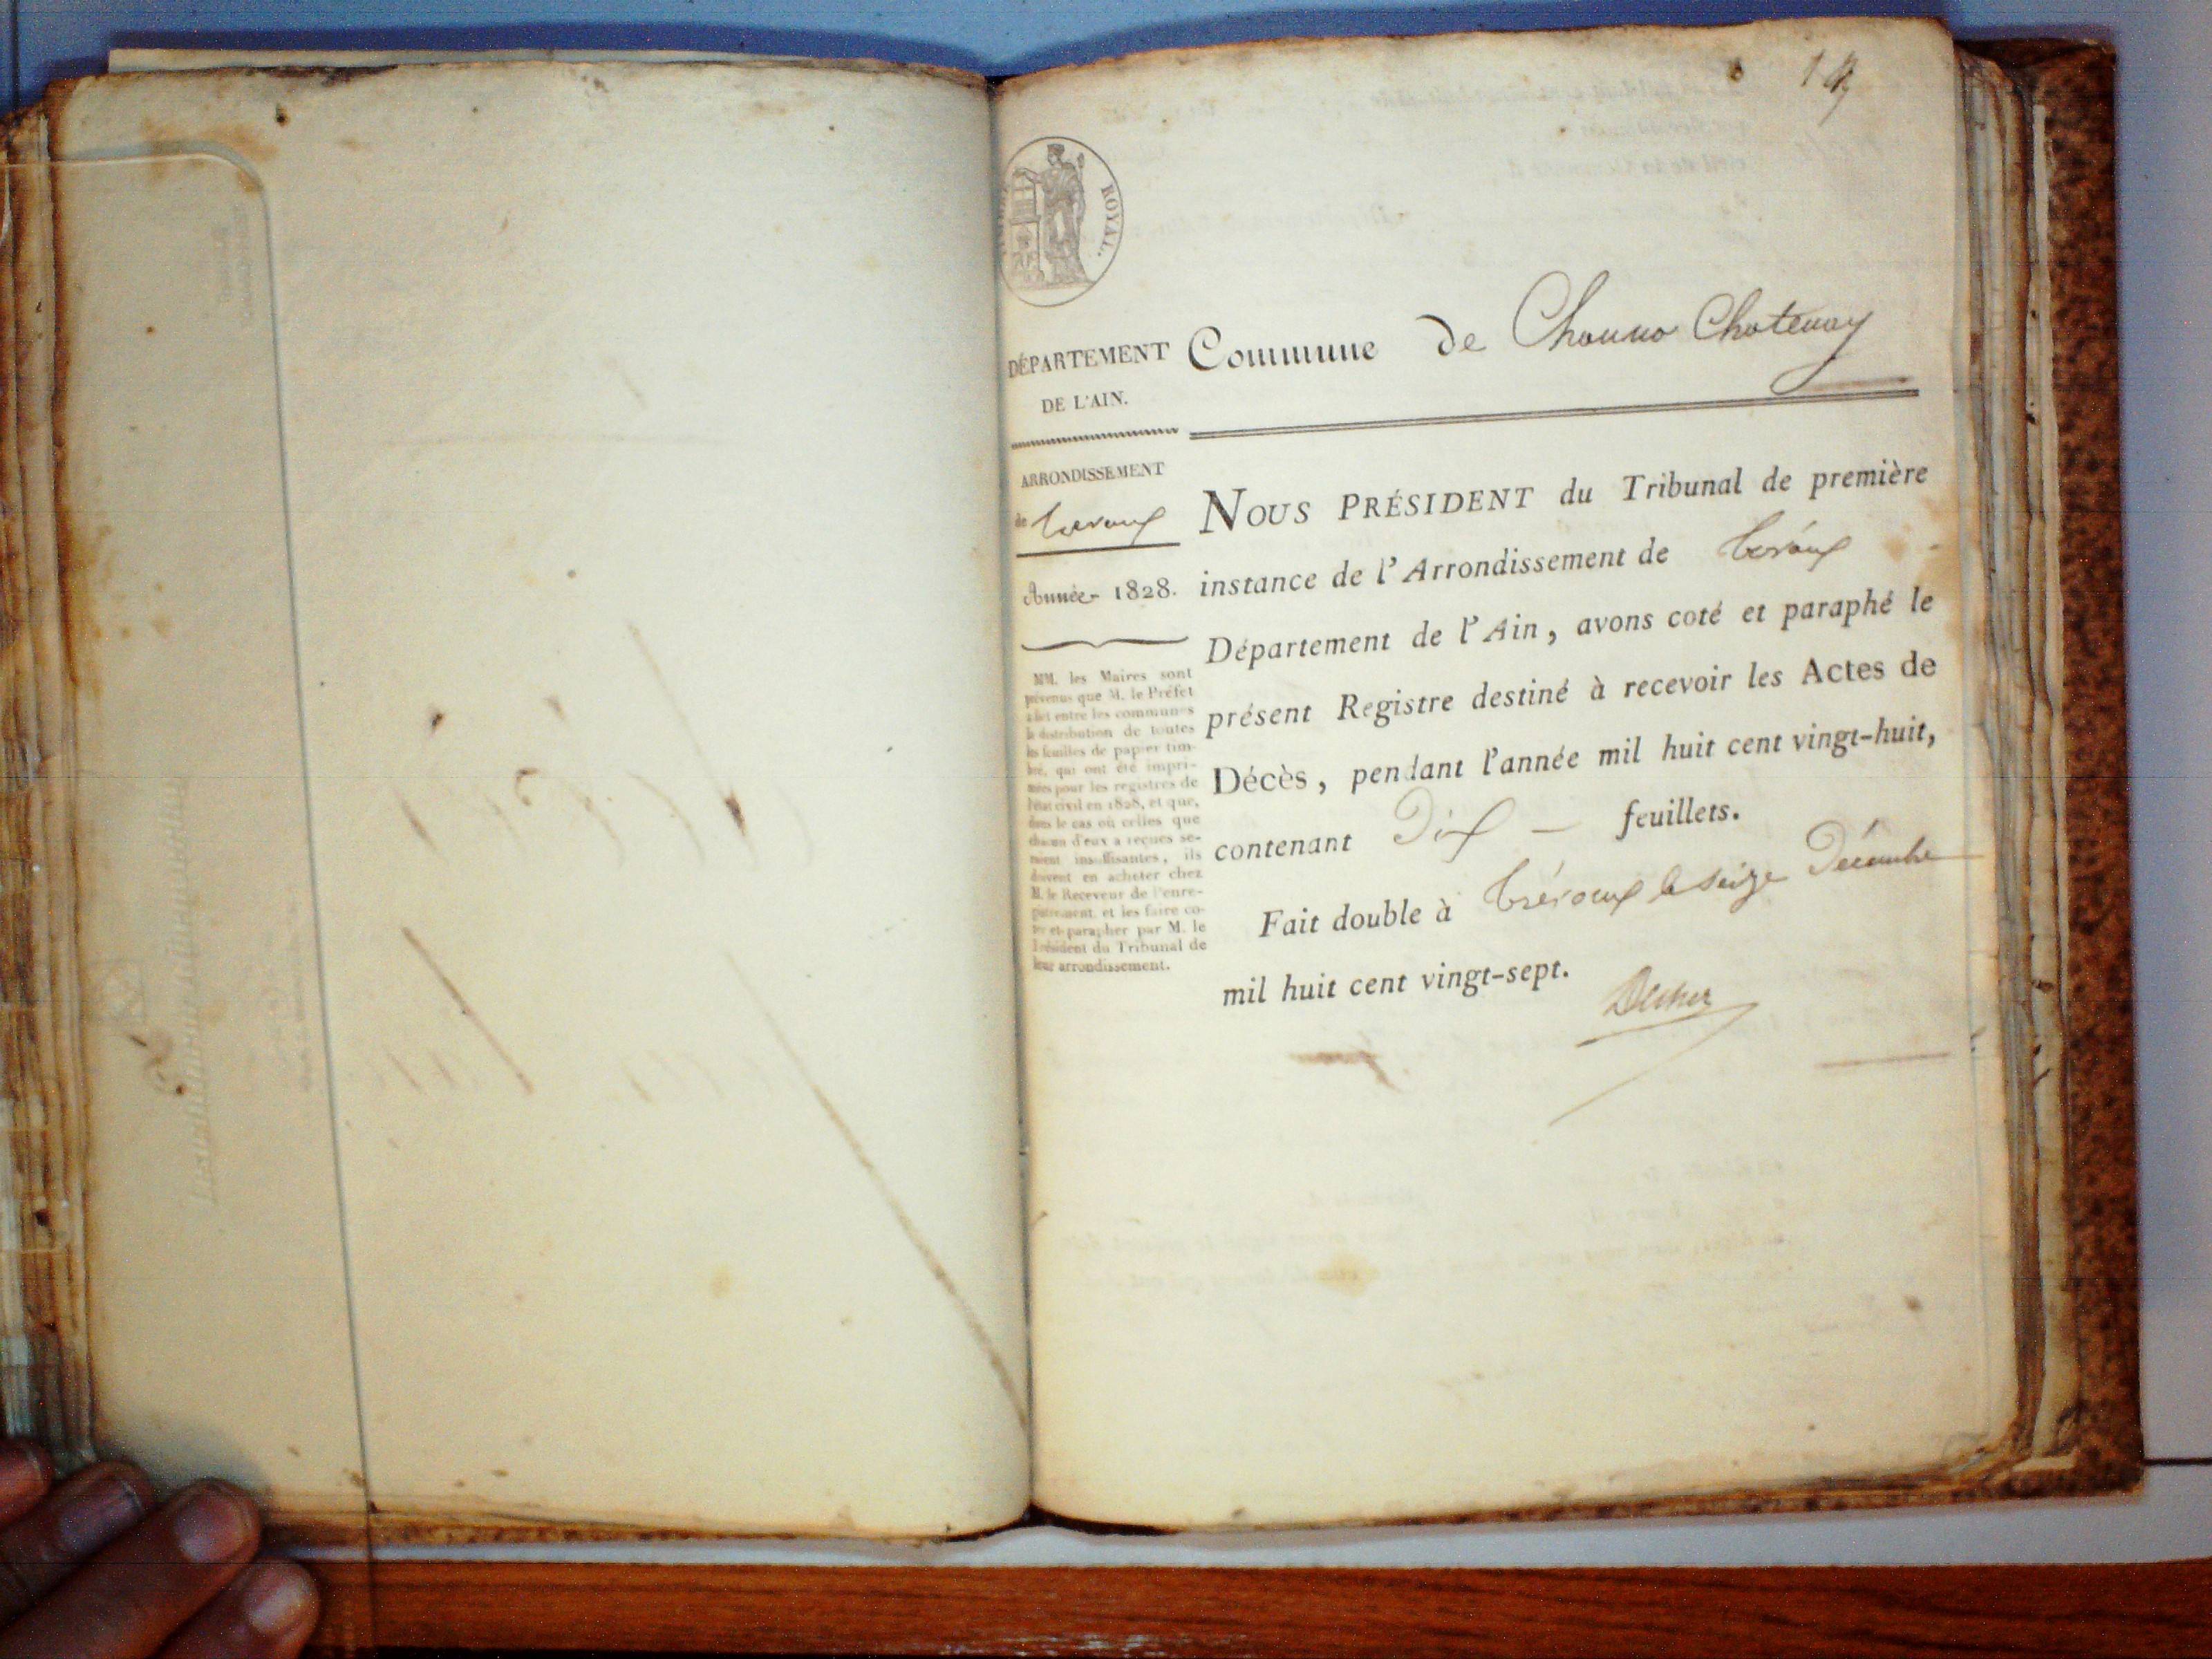 ROYAL.
DÉPARTEMENT
DE L'AIN.
Commune de Channo Chatenay
ARRONDISSEMENT
de Trevoux
Année 1828.
MM. les Maires sont
prévenus que M. le Préfet
a fait entre les communes
la distribution de toutes
les feuilles de papier tim-
bré, qui ont été impri-
mées pour les registres de
l'état civil en 1828, et que,
dans le cas où celles que
chacun d'eux a reçues se-
roient insuffisantes, ils
doivent en acheter chez
M. le Receveur de l'enre-
gistrement, et les faire co-
ter et parapher par M. le
Président du Tribunal de
leur arrondissement.
NOUS PRÉSIDENT du Tribunal de première
instance de l'Arrondissement de Trévoux
Département de l'Ain, avons coté et paraphé le
présent Registre destiné à recevoir les Actes de
Décès, pendant l'année mil huit cent vingt-huit,
contenant Dix — feuillets.
Fait double à Trévoux le seize Décembre
mil huit cent vingt-sept.